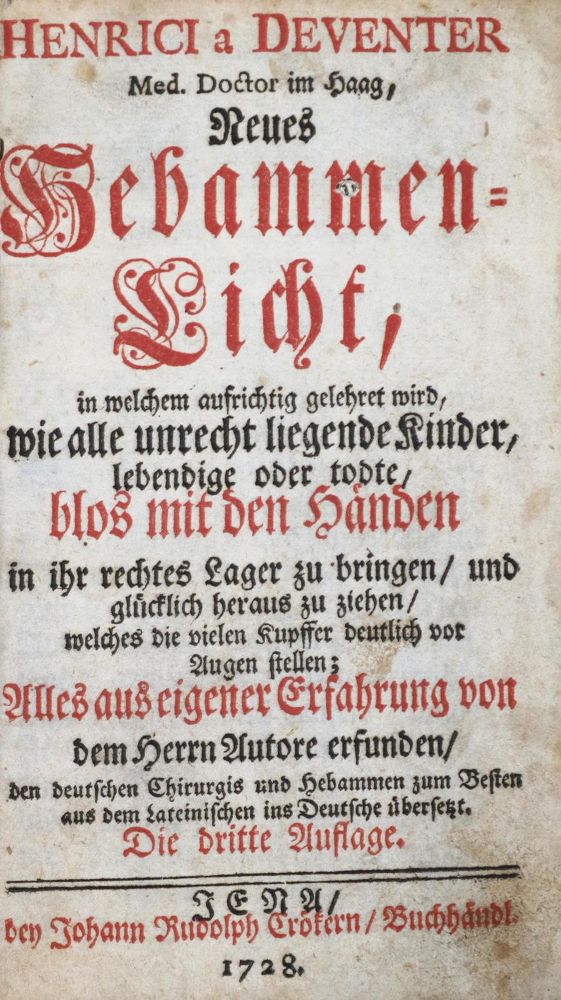 HENRICI a DEVENTER
Med. Doctor im Haag,
Neues
Hebammen-
Licht,
in welchem aufrichtig gelehret wird,
wie alle unrecht liegende Kinder,
lebendige oder todte/
blos mit den Händen
in ihr rechtes Lager zu bringen/ und
glücklich heraus zu ziehen/
welches die vielen Kupffer deutlich vor
Augen stellen;
Alles aus eigener Erfahrung von
dem Herrn Autore erfunden/
den deutschen Chirurgis und Hebammen zum Besten
aus dem Lateinischen ins Deutsche übersetzt.
Die dritte Auflage.
JENA/
bey Johann Rudolph Crökern/ Buchhändl.
1728.